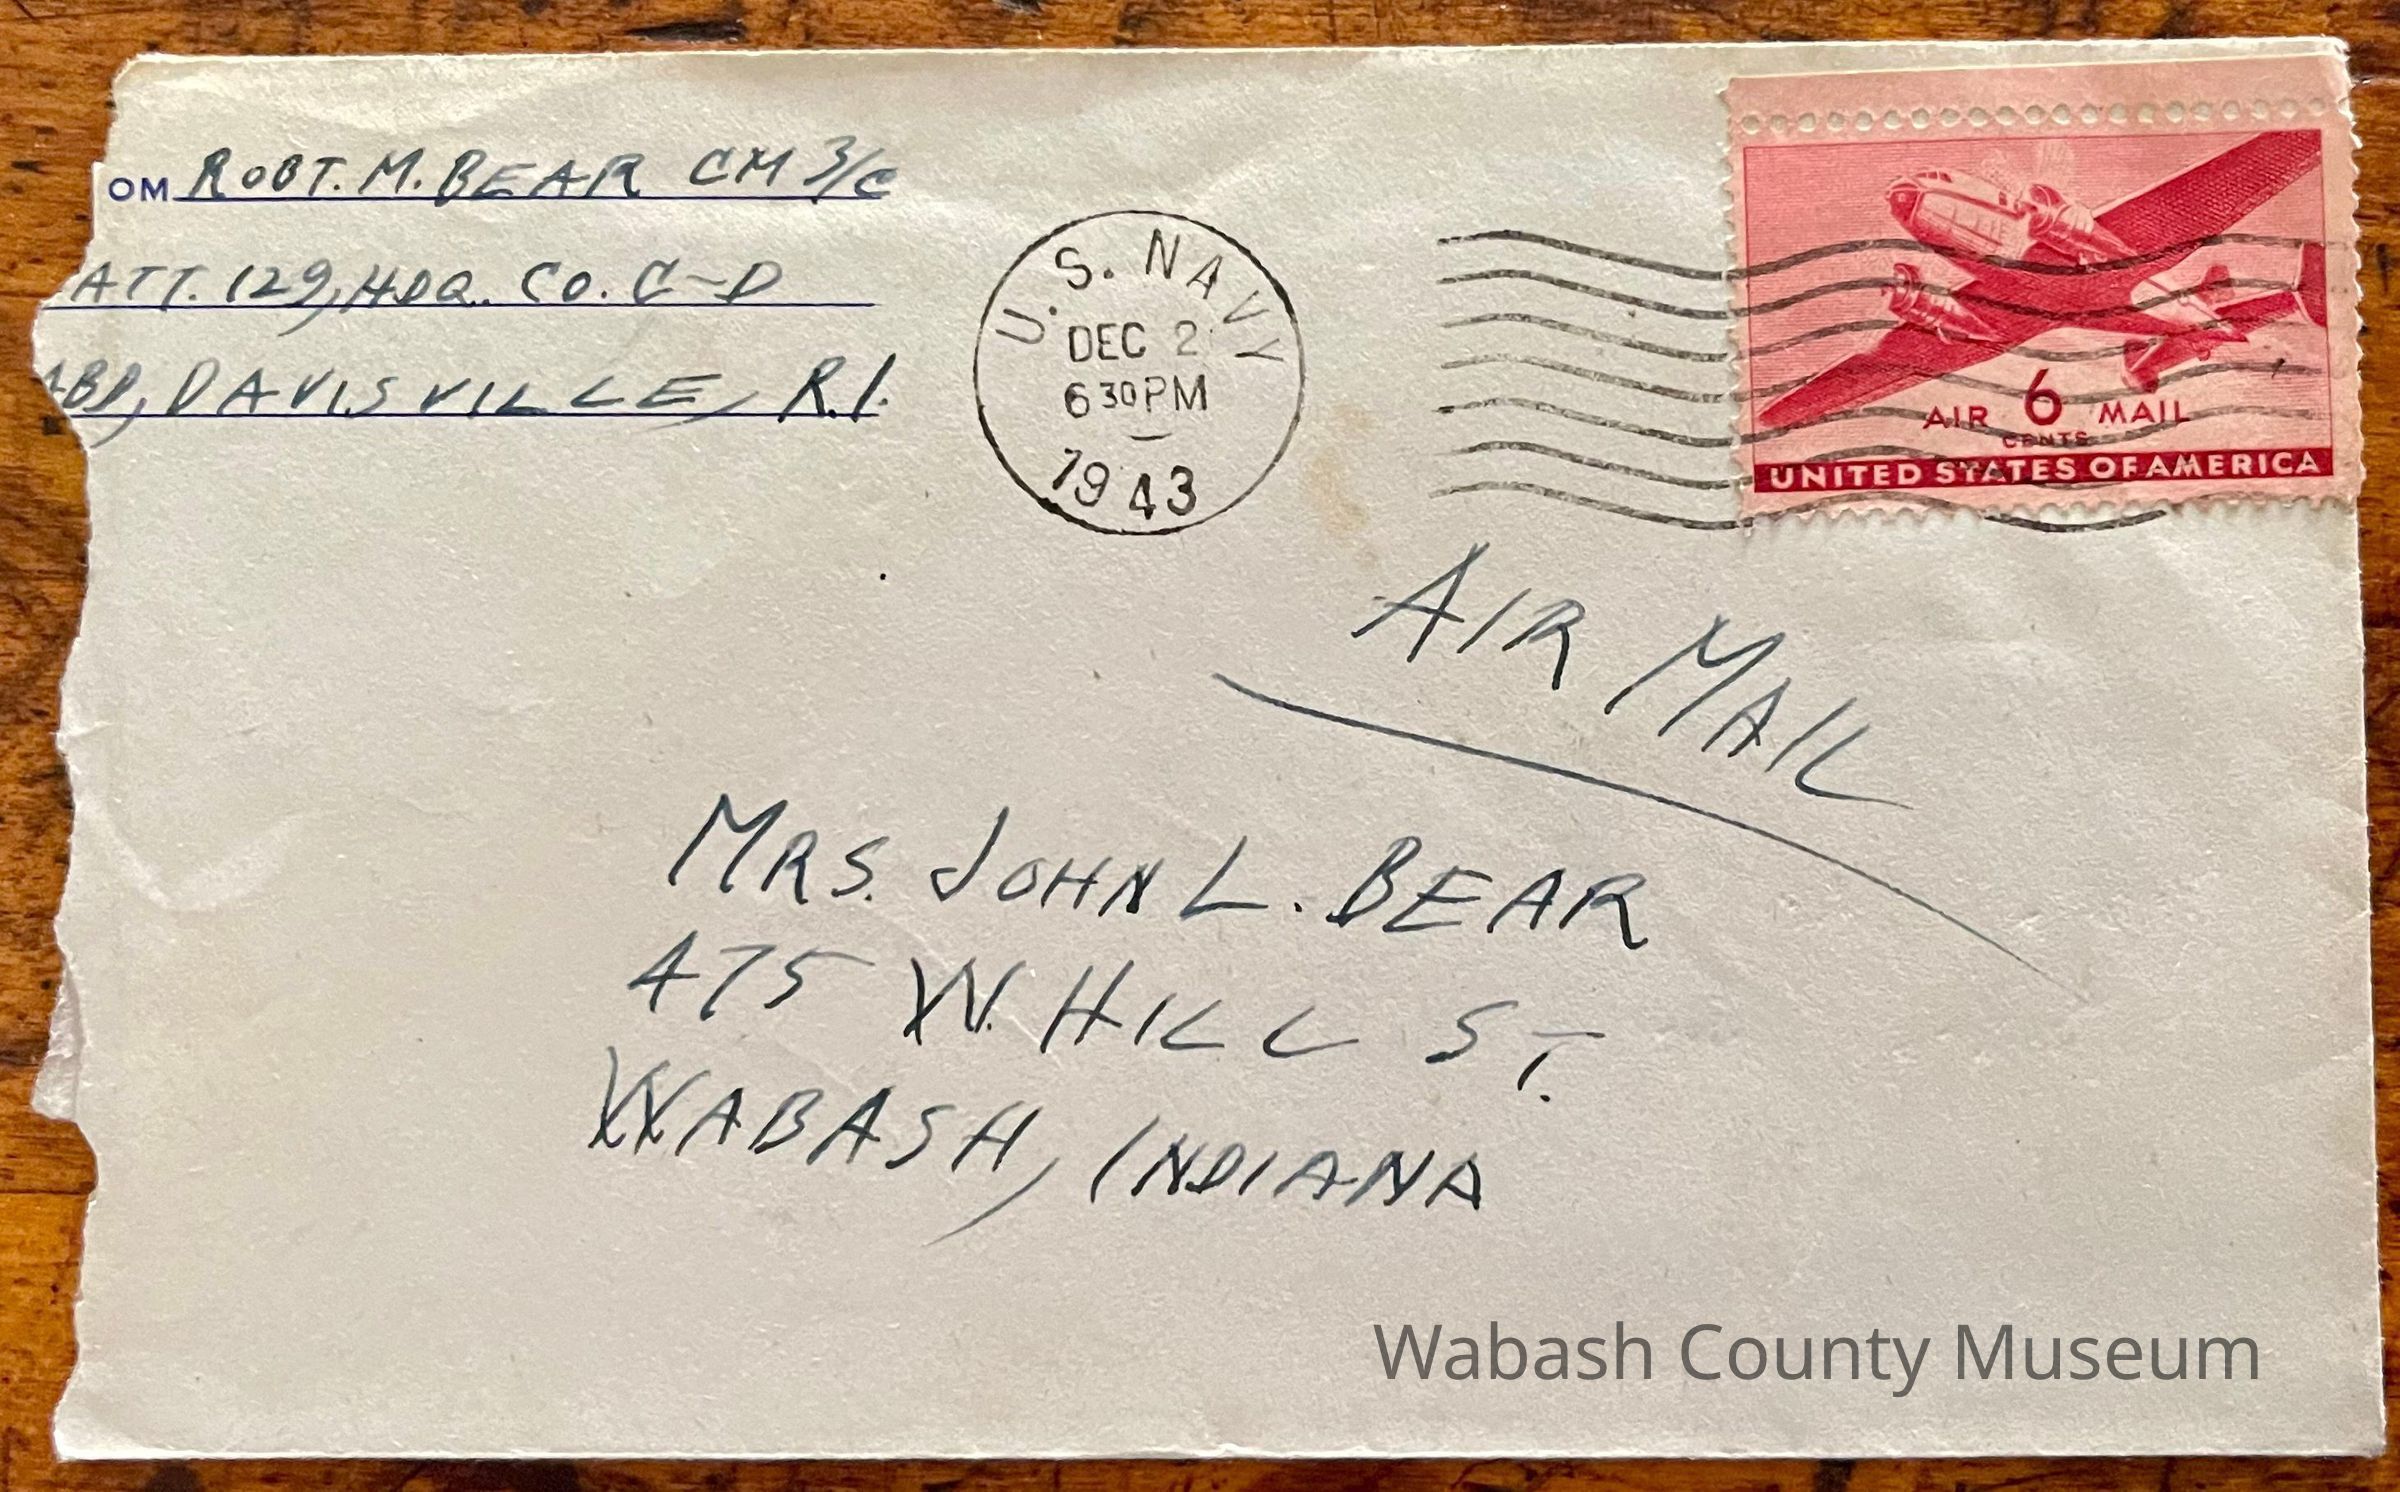 OM ROBT. M. BEAR CM 3/C
ATT. 129, HDQ. CO. C-D
ABD, DAVISVILLE, R.I.
U.S. NAVY
DEC 2
6 30 PM
1943
AIR 6 MAIL
CENTS
UNITED STATES OF AMERICA
AIR MAIL
MRS. JOHN L. BEAR
475 W. HILL ST.
WABASH, INDIANA
Wabash County Museum